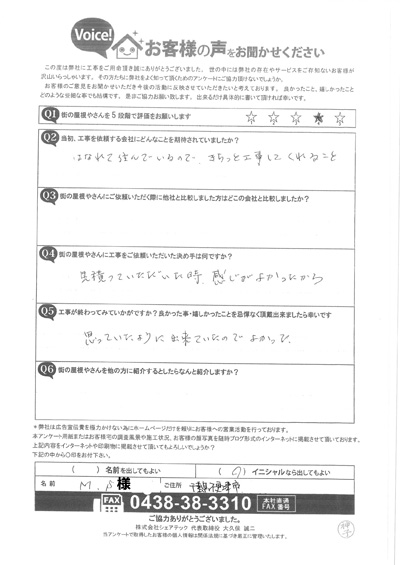 Voice!
お客様の声をお聞かせください
この度は弊社に工事をご用命頂き誠にありがとうございました。世の中には弊社の存在やサービスをご存知ないお客様が
沢山いらっしゃいます。その方たちに弊社をよく知って頂くためのアンケートにご協力頂けないでしょうか。
お客様のご意見をお聞かせいただき今後の活動に反映させていただきたいと考えております。良かったこと、嬉しかったこと
どのような些細な事でも結構です。是非ご協力お願い致します。出来るだけ具体的に書いて頂ければ幸いです。
Q1 街の屋根やさんを5段階で評価をお願いします ☆ ☆ ☆ ★ ☆
Q2 当初、工事を依頼する会社にどんなことを期待されていましたか？
はなれて住んでいるので、きちっと工事してくれること
Q3 街の屋根やさんにご依頼いただく際に他社と比較しました方はどこの会社と比較しましたか？
Q4 街の屋根やさんに工事をご依頼いただいた決め手は何ですか？
見積っていただいた時、感じがよかったから
Q5 工事が終わってみていかがですか？良かった事・嬉しかったことを忌憚なく頂戴出来ましたら幸いです
思っていたように出来ていたのでよかった。
Q6 街の屋根やさんを他の方に紹介するとしたらなんと紹介しますか？
＊弊社は広告宣伝費を極力かけない為にホームページだけを頼りにお客様への営業活動を行っております。
本アンケート用紙またはお客様宅の調査風景や施工状況、お客様の顔写真を随時ブログ形式のインターネットに掲載させて頂いております。
上記内容をインターネットや印刷物に掲載させて頂いてもよろしいでしょうか？
下記の中から〇印をお付下さい。
（ ）名前を出してもよい （〇）イニシャルなら出してもよい
名前 M.S様 ご住所 君津市
FAX 0438-38-3310 本社直通 FAX番号
ご協力ありがとうございました。
株式会社シェアテック 代表取締役 大久保 誠二
当アンケートで取得したお客様の個人情報は関係法規に基づき厳正に管理いたします。